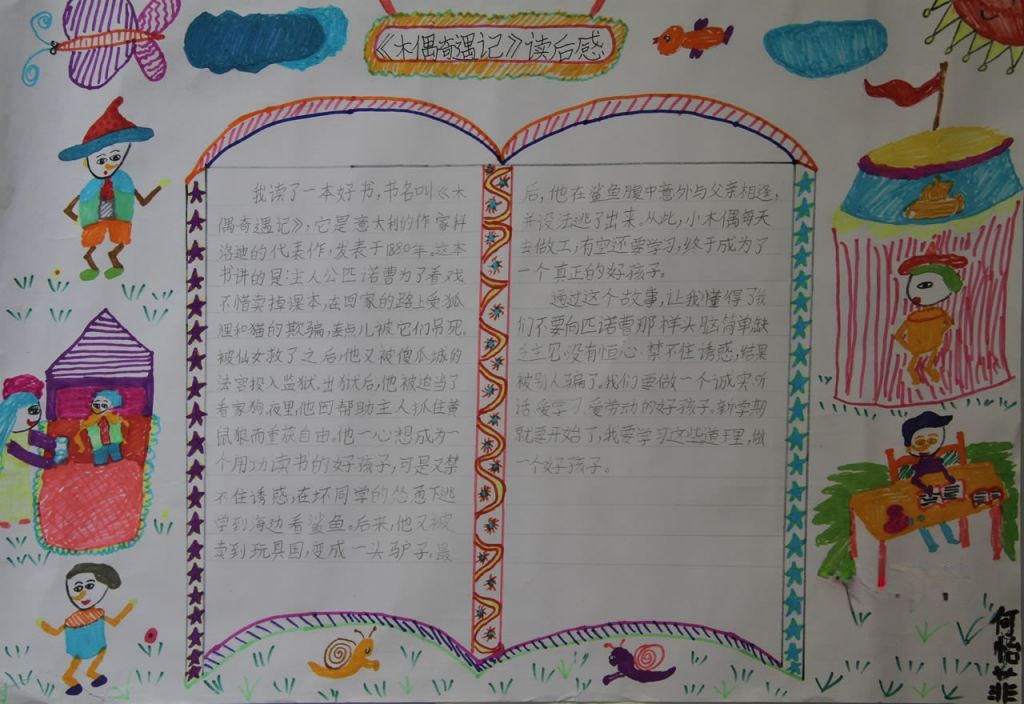 《木偶奇遇记》读后感
我读了一本好书,书名叫《木
偶奇遇记》,它是意大利的作家科
洛迪的代表作,发表于1880年。这本
书讲的是:主人公匹诺曹为了看戏
不惜卖掉课本,在回家的路上受狐
狸和猫的欺骗,差点儿被它们吊死。
被仙女救了之后,他又被傻瓜城的
法官投入监狱。出狱后,他被迫当了
看家狗,夜里,他因帮助主人抓住黄
鼠狼而重获自由。他一心想成为一
个用功读书的好孩子,可是又禁
不住诱惑,在坏同学的怂恿下逃
学到海边看鲨鱼。后来,他又被
卖到玩具国,变成一头驴子。最
后,他在鲨鱼腹中意外与父亲相逢,
并设法逃了出来。从此,小木偶每天
去做工,有空还要学习,终于成为了
一个真正的好孩子。
通过这个故事,让我懂得了我
们不要向匹诺曹那样头脑简单,缺
乏主见,没有恒心,禁不住诱惑,结果
被别人骗了。我们要做一个诚实、听
话、爱学习、爱劳动的好孩子。新学期
就要开始了,我要学习这些道理,做
一个好孩子。